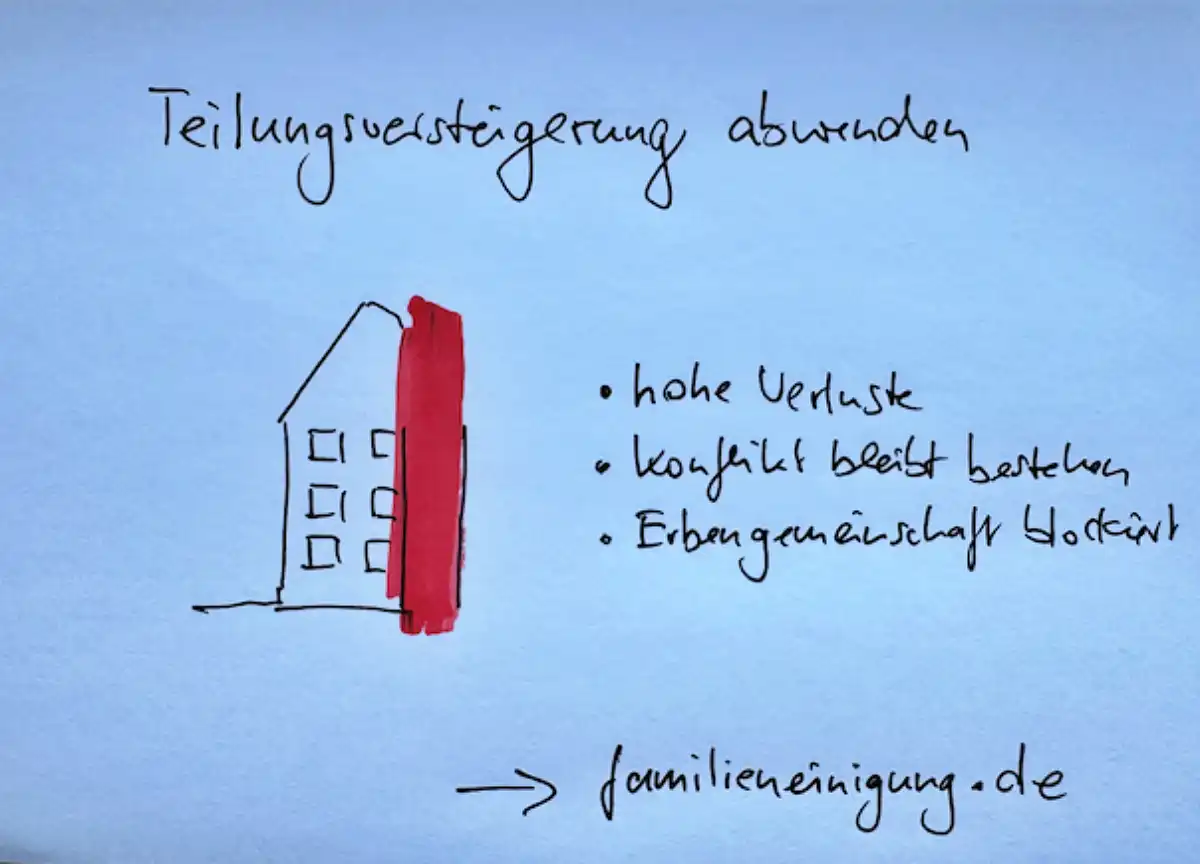 Teilungsversteigerung abwenden
• hohe Verluste
• Konflikt bleibt bestehen
• Erbengemeinschaft blockiert
→ familieneinigung.de